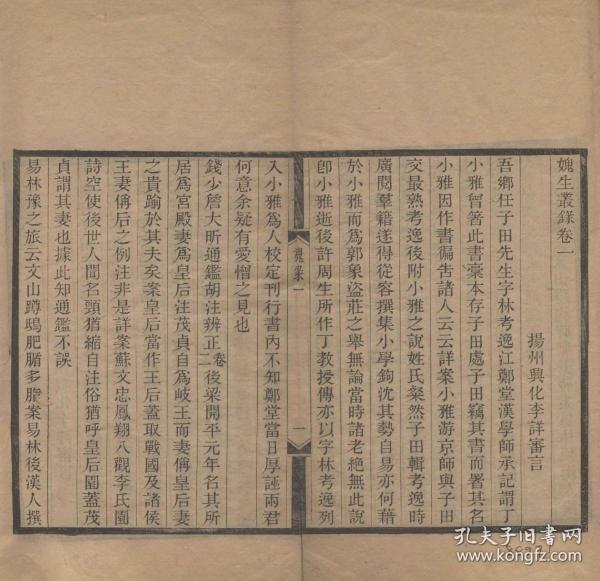 媿生叢錄卷一
揚州興化李詳審言
吾鄉任子田先生字林考逸江鄭堂漢學師承記謂丁
小雅曾箸此書稾本存子田處子田竊其書而署其名
小雅因作書徧告諸人云云詳案小雅游京師與子田
交最熟考逸後附小雅之說姓氏粲然子田輯考逸時
廣閱羣籍遂得從容撰集小學鉤沈其勢自易亦何藉
於小雅而爲郭象盜莊之舉無論當時諸老絶無此說
卽小雅逝後許周生所作丁教授傳亦以字林考逸列
媿錄一
一
入小雅爲人校定刊行書內不知鄭堂當日厚誣兩君
何意余疑有愛憎之見也
錢少詹大昕通鑑胡注辨正二卷後梁開平元年名其所
居爲宮殿妻爲皇后注茂貞自爲岐王而妻偁皇后妻
之貴踰於其夫矣案皇后當作王后蓋取戰國及諸侯
王妻偁后之例注非是詳案蘇文忠鳳翔八觀李氏園
詩空使後世人聞名頭猶縮自注俗猶呼皇后園蓋茂
貞謂其妻也據此知通鑑不誤
易林豫之旅云文山蹲鴟肥腯多脂案易林後漢人撰
孔夫子旧书网
www.kongfz.com